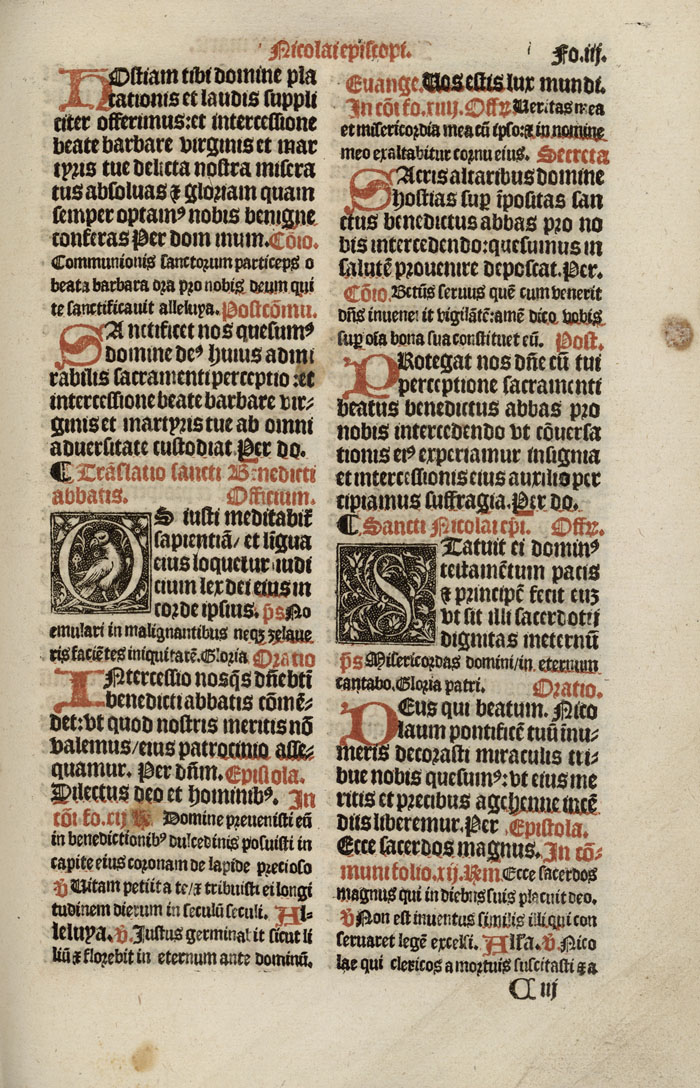 Nicolai episcopi.
Fo.iij.
HOstiam tibi domine pla
cationis et laudis suppli
citer offerimus:et intercessione
beate barbare virginis et mar
tyris tue delicta nostra misera
tus absoluas ⁊ gloriam quam
semper optamꝰ nobis benigne
conferas Per dom inum. Cōio.
Communionis sanctorum particeps o
beata barbara ora pro nobis deum qui
te sanctificauit alleluya. Postcōmu.
SAnctificet nos quesumꝰ
domine deꝰ huius admi
rabilis sacramenti perceptio :et
intercessione beate barbare vir⸗
ginis et martyris tue ab omni
aduersitate custodiat. Per do.
¶ Trāslatio sancti Benedicti
abbatis. Officium.
OS iusti meditabit̄
sapientiā/ et līgua
eius loquetur iudi
cium lex dei eius in
corde ipsius. p̄s No
emulari in malignantibus neqꝫ zelaue
ris faciētes iniquitatē. Gloria Oratio
INtercessio nos qs̄ dn̄e bt̄i
benedicti abbatis cōmē⸗
det:vt quod nostris meritis nō
valemus/eius patrocinio asse⸗
quamur. Per dn̄m. Epistola.
Dilectus deo et hominibꝰ. In
cōi fo.xij R̄ Domine preuenisti eū
in benedictionibꝰ dulcedinis posuisti in
capite eius coronam de lapide precioso
℣ Vitam petiit a te/⁊ tribuisti ei longi
tudinem dierum in seculū seculi. Al⸗
leluya. ℣. Justus germinabit sicut li
liū ⁊ florebit in eternum ante dominū.
Euange. Vos estis lux mundi.
In cōi fo.xiiij. Offr̄. Veritas mea
et misericordia mea cū ipso:⁊ in nomine
meo exaltabitur cornu eius. Secreta
SAcris altaribus domine
hostias sup īpositas san
ctus benedictus abbas pro no
bis intercedendo:quesumus in
salutē prouenire deposcat. Per.
Cōio. Beatus seruus quē cum venerit
dn̄s inuenerit vigilātē:amē dico vobis
sup oīa bona sua constituet eū. Post.
PRotegat nos dn̄e cū tui
perceptione sacramenti
beatus benedictus abbas pro
nobis intercedendo vt cōuersa
tionis eiꝰ experiamur insignia
et intercessionis eius auxilio per
cipiamus suffragia. Per do.
¶ Sancti Nicolai epi. Offr̄.
STatuit ei dominꝰ
testamētum pacis
⁊ principē fecit euꝫ
vt sit illi sacerdotij
dignitas ineternū
p̄s Misericordias domini/in eternum
cantabo. Gloria patri. Oratio.
DEus qui beatum. Nico
laum pontificē tuū īnu⸗
meris decorasti miraculis tri⸗
bue nobis quesumꝰ: vt eius me
ritis et precibus a gehenne incē
diis liberemur. Per Epistola.
Ecce sacerdos magnus. In cō⸗
muni folio.xij. R̄m Ecce sacerdos
magnus qui in diebus suis placuit deo.
℣ Non est inuentus similis illi qui con
seruaret legē excelsi. Alla. ℣. Nico
lae qui clericos a mortuis suscitasti ⁊ a
C iij